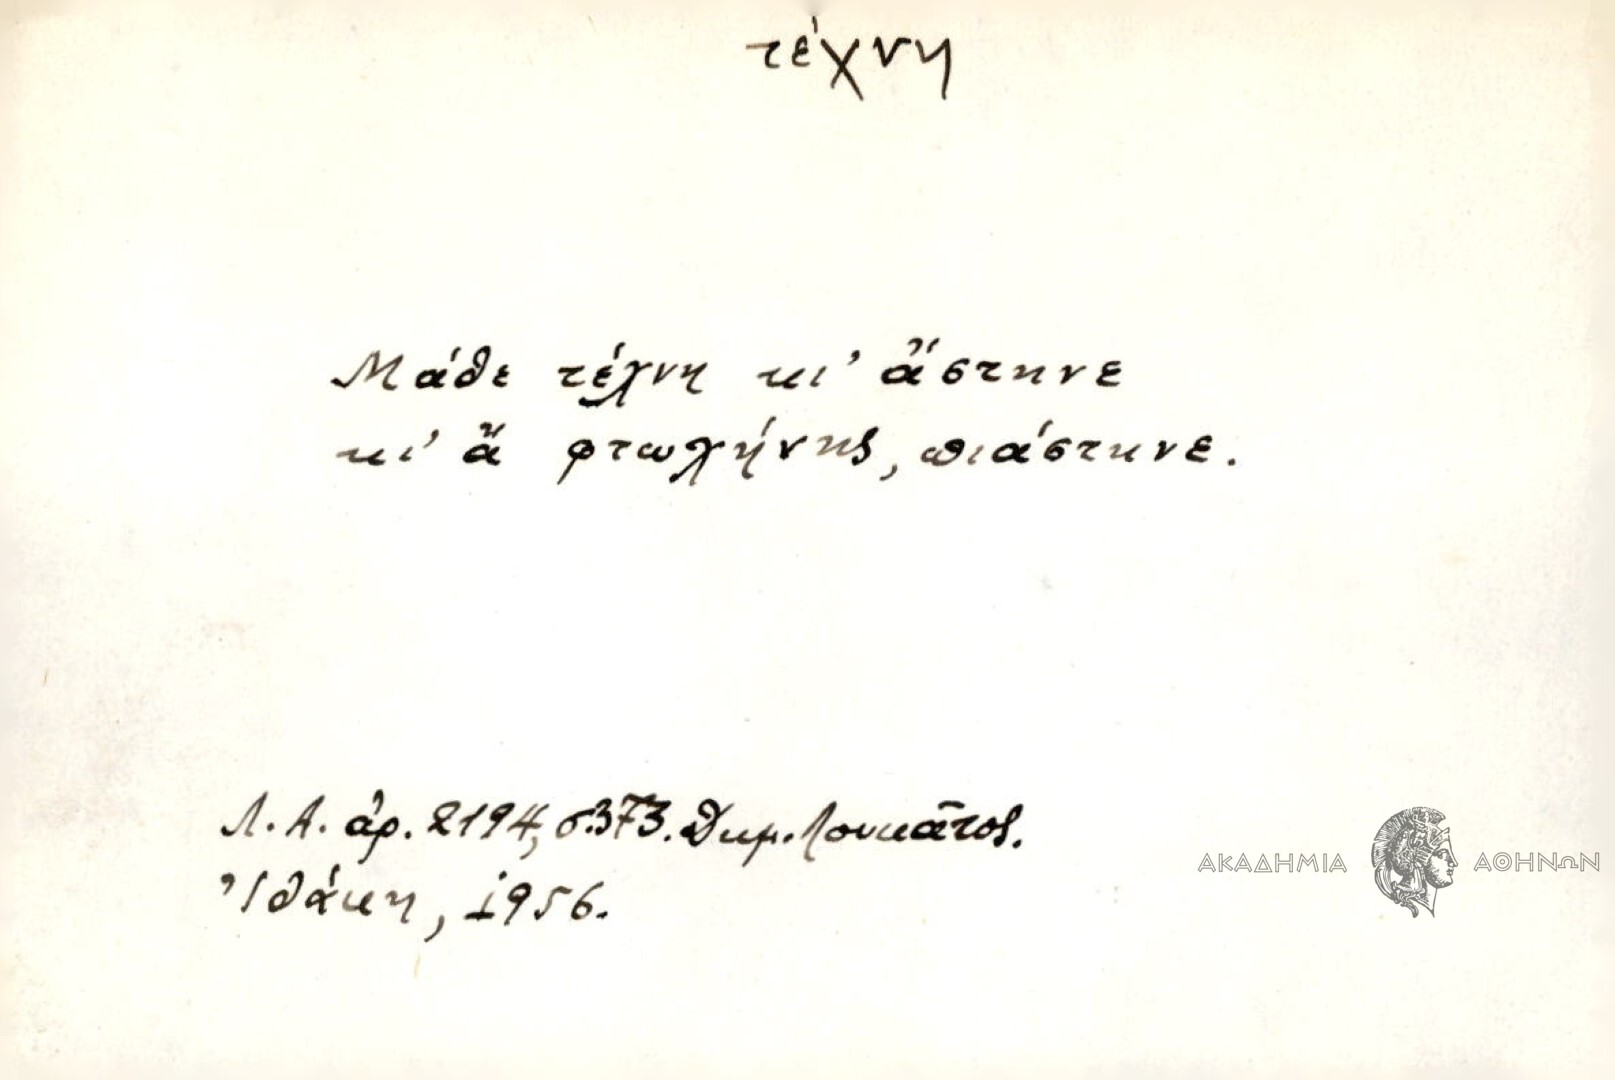 τέχνη
Μάθε τέχνη κι' ἄστηνε
κι' ἄ φτωχήνῃς, πιάστηνε.
Λ.Α. ἀρ. 2194, σ.373. Δημ. Λουκᾶτος.
Ἰθάκη, 1956.
ΑΚΑΔΗΜΙΑ ΑΘΗΝΩΝ